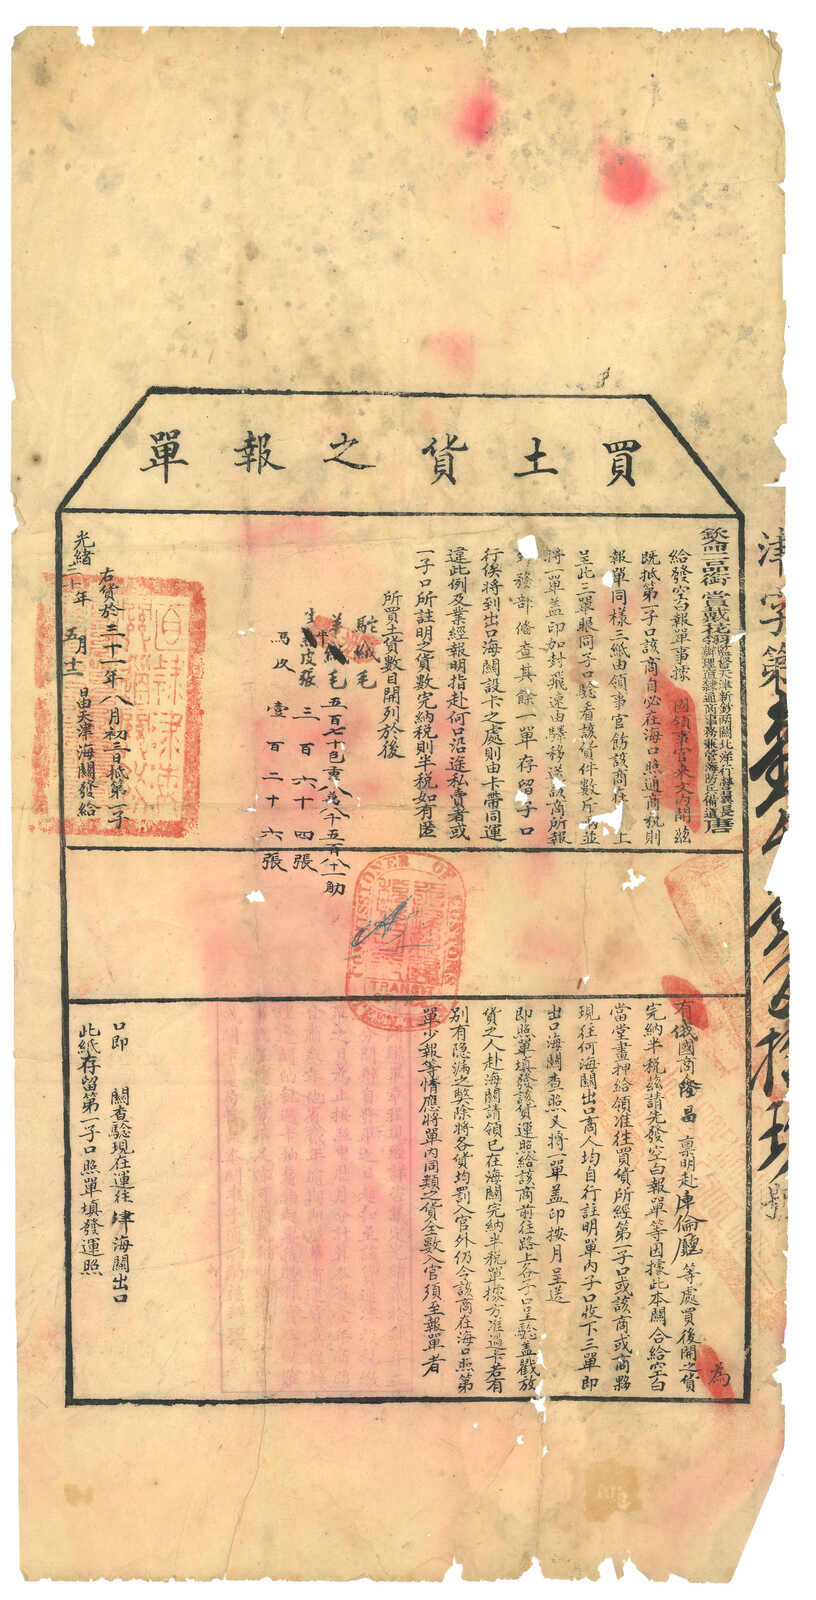 買土貨之報單
欽命二品銜 賞戴花翎監督天津新鈔兩關北洋行營翼長辦理直隸通商事務兼管海防兵備道唐 為
給發空白報單事據 國領事官來文內開茲
有俄國商隆昌 稟明赴庫倫廳等處買後開之貨
既抵第一子口該商自必在海口照通商稅則
完納半稅茲請先發空白報單等因據此本關合給空白
報單同樣三紙由領事官飭該商在 上
當堂畫押給領准往買貨所經第一子口或該商或商夥
呈此三單眼同子口驗看該貨件數斤兩並
現往何海關出口商人均自行註明單內子口收下三單即
將一單蓋印加封飛遞由驛移送該商所報
出口海關查照又將一單蓋印按月呈送
外務部偹查其餘一單存留子口
即照單填發該貨運照給該商前往路上各子口呈驗蓋戳放
行俟將到出口海關設卡之處則由卡帶同運
貨之人赴海關請領已在海關完納半稅單據方准過卡若有
違此例及業經報明指赴何口沿途私賣者或
別有隱漏之獘除將各貨均罰入官外仍令該商在海口照第
一子口所註明之貨數完納稅則半稅如有匿
單少報等情應將單內同類之貨全數入官須至報單者
所買土貨數目開列於後
駝絨毛
羊絨毛 五百七十包重八萬八千五百八十一觔
生 皮張 三百六十四張
馬皮 壹百二十六張
右貨於三十一年八月初三日抵第一子
口即 關查驗現在運往津海關出口
光緒三十一年 五月十二日由天津海關發給
此紙存留第一子口照單填發運照
津字第 號
COMMISSIONER OF CUSTOMS
TRANSIT
TIENTSIN